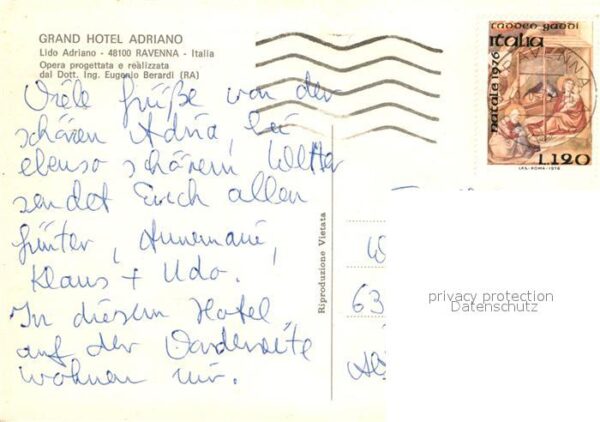 GRAND HOTEL ADRIANO
Lido Adriano - 48100 RAVENNA - Italia
Opera progettata e realizzata
dal Dott. Ing. Eugenio Berardi (RA)
Viele Grüße von der
schönen Adria, bei
ebenso schönem Wetter
sendet Euch allen
Günter, Annemarie,
Klaus + Udo.
In diesem Hotel
auf der Vorderseite
wohnen wir.
Riproduzione Vietata
taddeo gaddi
italia
natale 1976
L.120
I.P.S.-ROMA-1976
W
63
privacy protection
Datenschutz